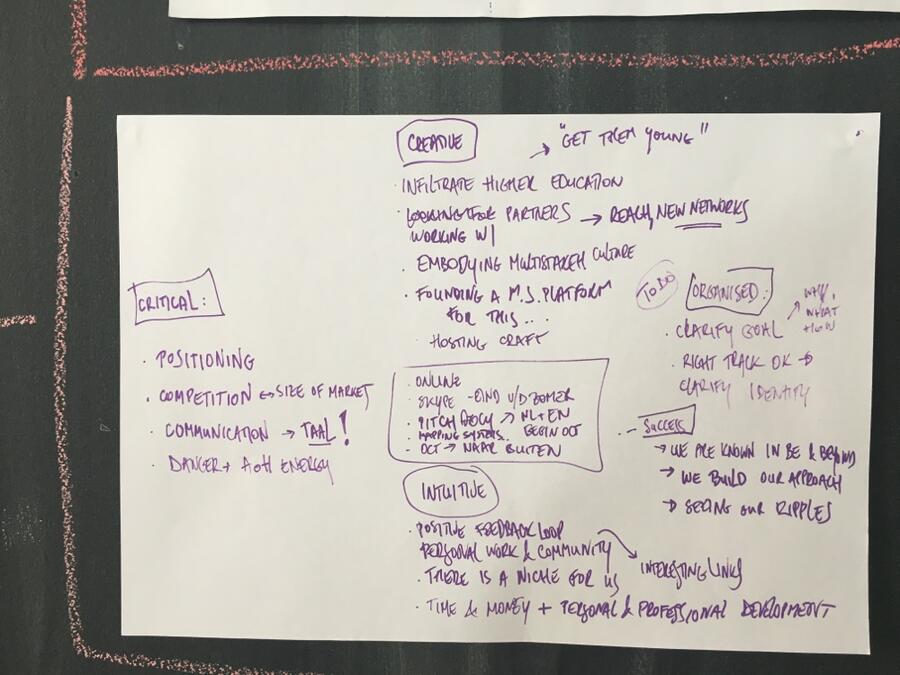 CRITICAL:
· POSITIONING
· COMPETITION ↔ SIZE OF MARKET
· COMMUNICATION → TAAL!
· DANGER + AOH ENERGY
CREATIVE
→ "GET THEM YOUNG"
· INFILTRATE HIGHER EDUCATION
· LOOKING FOR PARTNERS → REACH, NEW NETWORKS
WORKING W/
· EMBODYING MULTISTAKEH CULTURE
· FOUNDING A M.S. PLATFORM
FOR THIS...
· HOSTING CRAFT
· ONLINE
· SKYPE - EIND V/D ZOMER
· PITCH → NL + EN
· MAPPING SYSTEMS. BEGIN OCT
· OCT → NAAR BUITEN
INTUITIVE
· POSITIVE FEEDBACK LOOP
PERSONAL WORK & COMMUNITY
→ INTERESTING LINKS
· THERE IS A NICHE FOR US
· TIME & MONEY + PERSONAL & PROFESSIONAL DEVELOPMENT
TO DO
ORGANISED:
WHY,
WHAT
HOW
· CLARIFY GOAL
· RIGHT TRACK OK →
CLARIFY IDENTITY
- SUCCESS
→ WE ARE KNOWN IN BE & BEYOND
→ WE BUILD OUR APPROACH
→ SEEING OUR RIPPLES